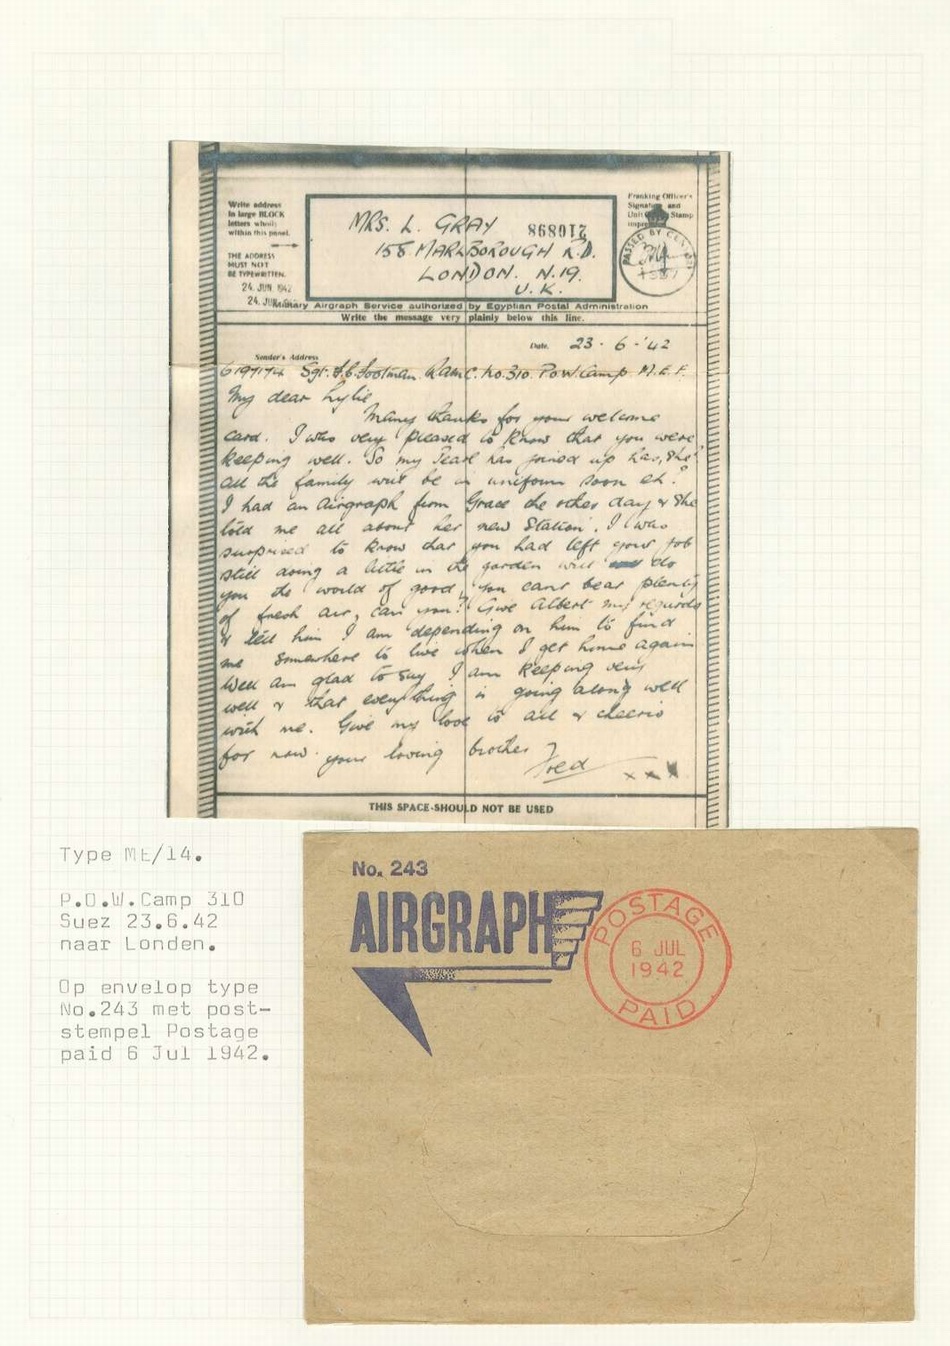 Write address
in large BLOCK
letters wholly
within this panel.
THE ADDRESS
MUST NOT
BE TYPEWRITTEN.
24 JUN 1942
24 JUN 1942
MRS. L. GRAY
210898
158 MARLBOROUGH RD.
LONDON. N.19.
U.K.
Franking Officer's
Signature and
Unit Stamp
PASSED BY CENSOR
Military Airgraph Service authorized by Egyptian Postal Administration
Write the message very plainly below this line.
Date. 23 - 6 - '42
Sender's Address
Sgt. Footman. R.A.M.C. No. 310. P.O.W. Camp M.E.F.
My dear Lylie
Many thanks for your welcome
card. I was very pleased to know that you were
keeping well. So my Pearl has joined up has, she?
all the family will be in uniform soon eh?
I had an Airgraph from Grace the other day & she
told me all about her new Station. I was
surprised to know that you had left your job
still doing a little in the garden will do
you the world of good, you cant beat plenty
of fresh air, can you? Give Albert my regards
& tell him I am depending on him to find
me somewhere to live when I get home again
Well am glad to say I am keeping very
well & that everything is going along well
with me. Give my love to all & cheerio
for now your loving brother
Fred x x x
THIS SPACE SHOULD NOT BE USED
Type ME/14.
P.O.W.Camp 310
Suez 23.6.42
naar Londen.
Op envelop type
No.243 met post-
stempel Postage
paid 6 Jul 1942.
No. 243
AIRGRAPH
POSTAGE
6 JUL
1942
PAID